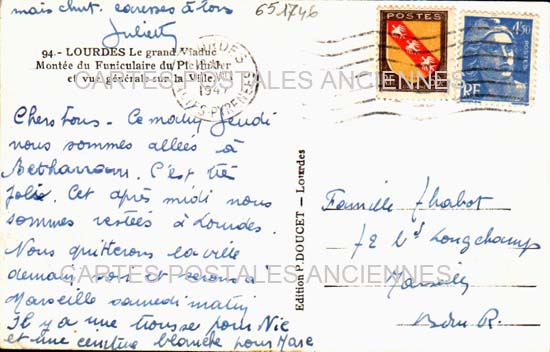 mais chut. caresses à tous
Juliette
651746
94.- LOURDES Le grand Viaduc
Montée du Funiculaire du Pic du Jer
et vue générale sur la Ville
1947
POSTES
4F50
POSTES
RF
CARTES POSTALES ANCIENNES
Chers tous - Ce matin Jeudi
nous sommes allées à
Betharram. C'est très
jolie. Cet après midi nous
sommes restées à Lourdes.
Nous quitterons la ville
demain soir et serons à
Marseille samedi matin
Il y a une trousse pour Nic
et une ceinture blanche pour Marc
Edition P. DOUCET - Lourdes
Famille Thabot
72 Bd Longchamp
Marseille
Bdu R.
CARTES POSTALES ANCIENNES